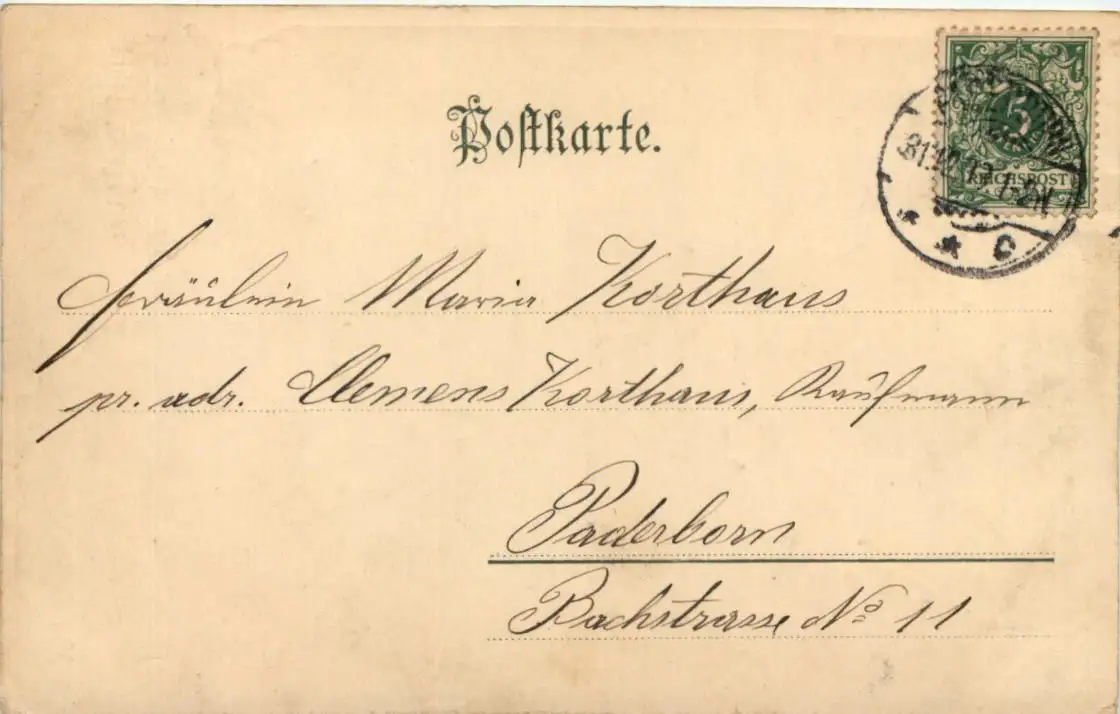 Postkarte.
5
REICHSPOST
Fräulein Maria Korthaus
pr. adr. Clemens Korthaus, Kaufmann
Paderborn
Bachstrasse No 11